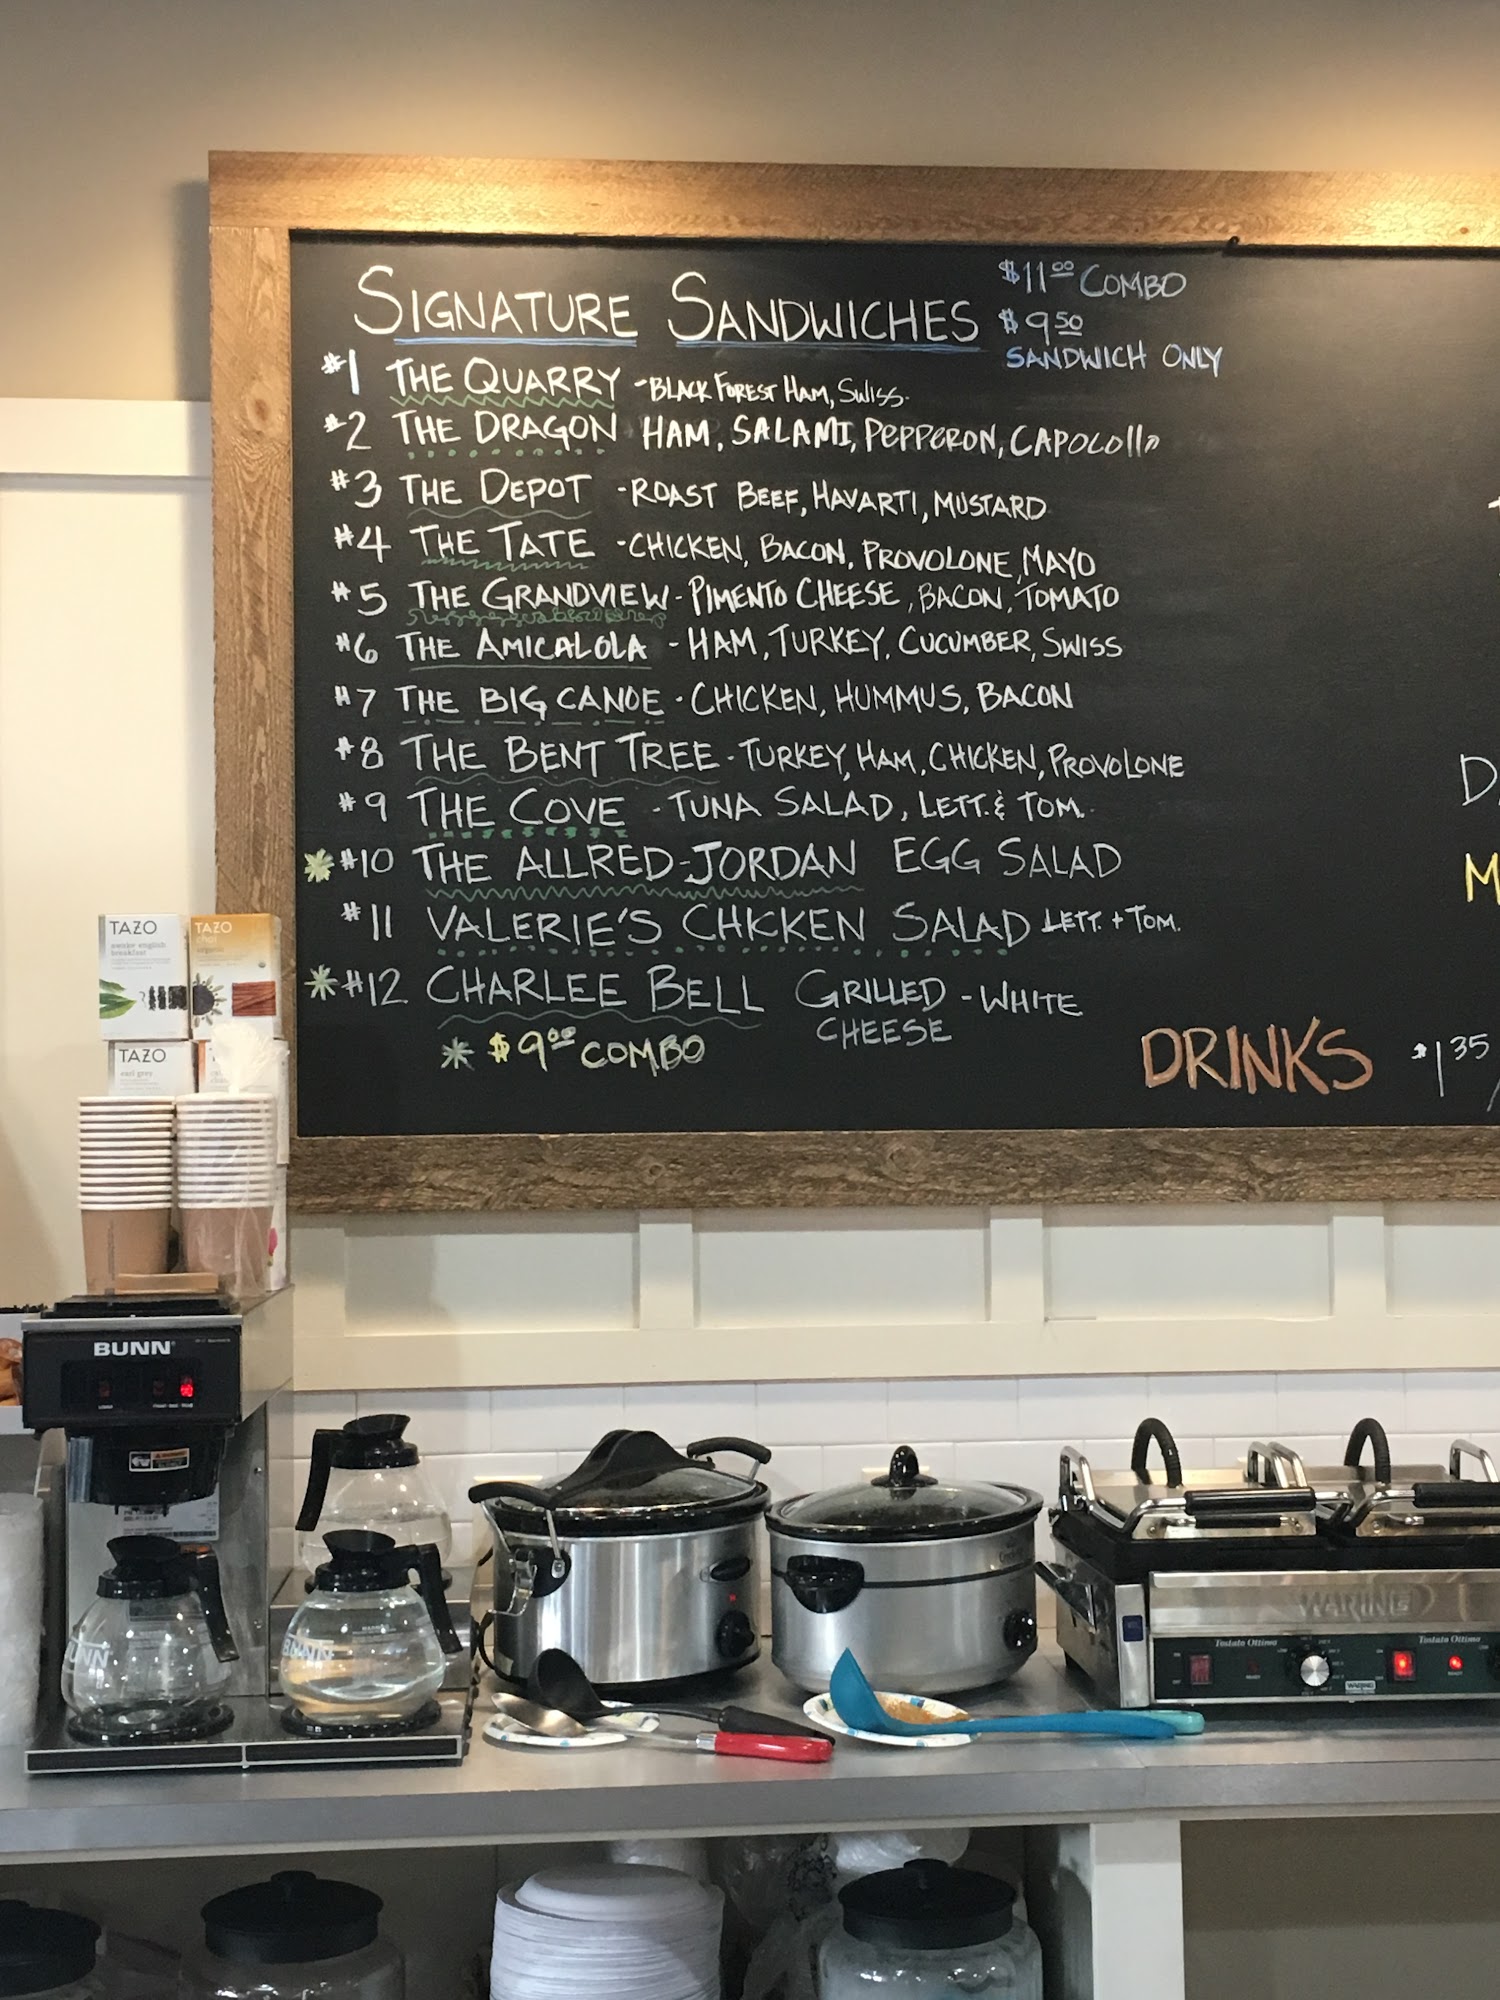 SIGNATURE SANDWICHES
$11.00 COMBO
$9.50
SANDWICH ONLY
#1 THE QUARRY - BLACK FOREST HAM, SWISS.
#2 THE DRAGON HAM, SALAMI, PEPPERON, CAPOCOllo
#3 THE DEPOT - ROAST BEEF, HAVARTI, MUSTARD
#4 THE TATE - CHICKEN, BACON, PROVOLONE, MAYO
#5 THE GRANDVIEW - PIMENTO CHEESE, BACON, TOMATO
#6 THE AMICALOLA - HAM, TURKEY, CUCUMBER, SWISS
#7 THE BIG CANOE - CHICKEN, HUMMUS, BACON
#8 THE BENT TREE - TURKEY, HAM, CHICKEN, PROVOLONE
#9 THE COVE - TUNA SALAD, LETT. & TOM.
*#10 THE ALLRED-JORDAN EGG SALAD
#11 VALERIE'S CHICKEN SALAD LETT. + TOM.
*#12 CHARLEE BELL GRILLED - WHITE
CHEESE
* $9.00 COMBO
D
M
DRINKS $1.35
TAZO
awake english
breakfast
TAZO
chai
organic
TAZO
earl grey
BUNN
BUNN
BUNN
WARING
Tostato Ottimo
Tostato Ottimo
WARING